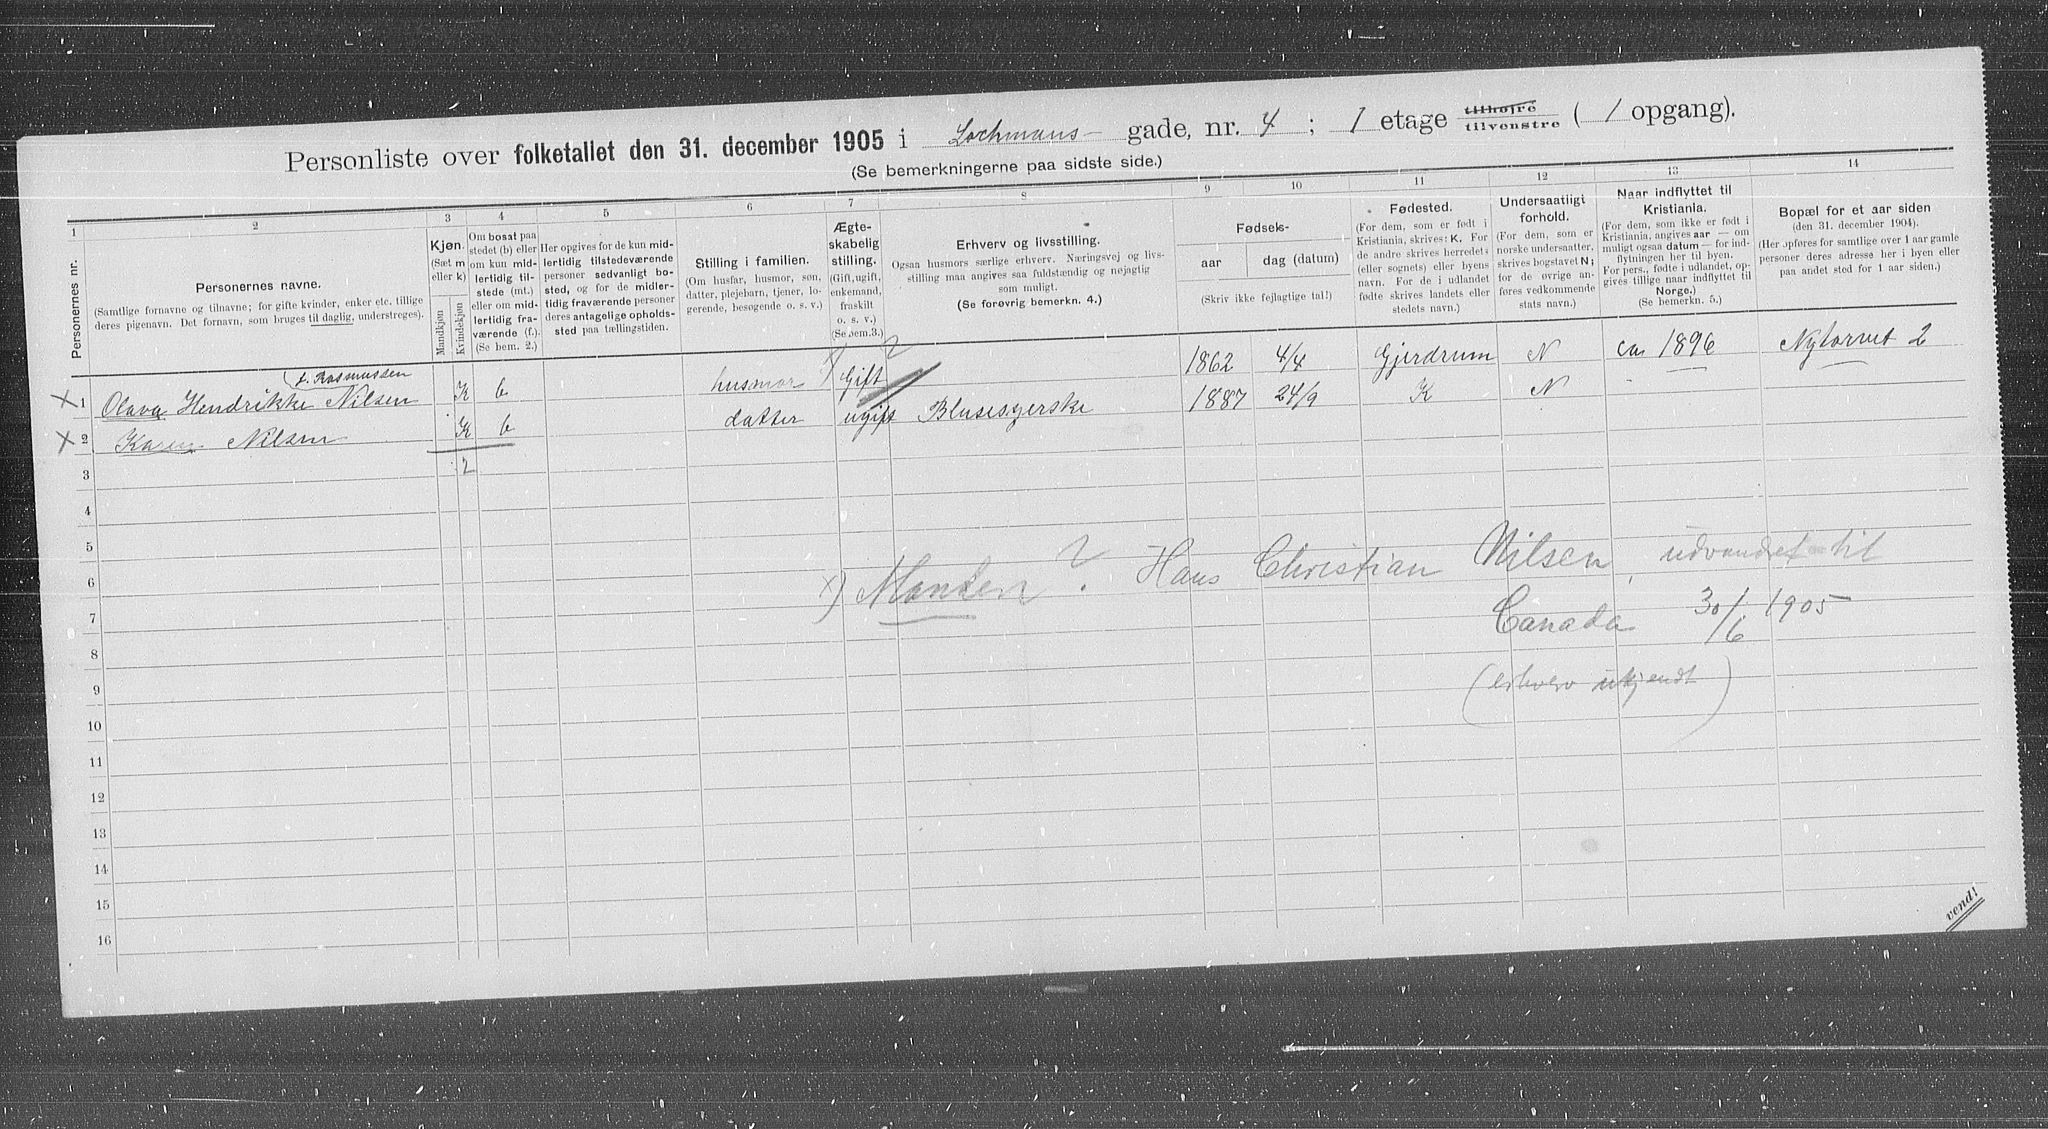 Personliste over folketallet den 31. december 1905 i Lochmans- gade, nr. 4 ; 1 etage tilhøjre tilvenstre ( 1 opgang).
(Se bemerkningerne paa sidste side.)
1 2 3 4 5 6 7 8 9 10 11 12 13 14
Personernes nr.
Personernes navne.
(Samtlige fornavne og tilnavne; for gifte kvinder, enker etc. tillige
deres pigenavn. Det fornavn, som bruges til daglig, understreges).
Kjøn.
(Sæt m
eller k)
Mandkjøn
Kvindekjøn
Om bosat paa
stedet (b) eller
om kun mid-
lertidig til-
stede (mt.)
eller om mid-
lertidig fra-
værende (f.).
(Se bem. 2.)
Her opgives for de kun mid-
lertidig tilstedeværende
personer sedvanlig bo-
sted, og for de midler-
tidig fraværende personer
deres antagelige opholds-
sted paa tællingstiden.
Stilling i familien.
(Om husfar, husmor, søn,
datter, plejebarn, tjener, lo-
gerende, besøgende o. s. v.)
Ægte-
skabelig
stilling.
(Gift, ugift,
enkemand,
fraskilt
o. s. v.)
(Se bem.3.)
Erhverv og livsstilling.
Ogsaa husmors særlige erhverv. Næringsvej og livs-
stilling maa angives saa fuldstændig og nøjagtig
som muligt.
(Se forøvrig bemerkn. 4.)
Fødsels-
aar dag (datum)
(Skriv ikke fejlagtige tal!)
Fødested.
(For dem, som er født i
Kristiania, skrives: K. For
de andre skrives herredets
(eller sognets) eller byens
navn. For de i udlandet
fødte skrives landets eller
stedets navn.)
Undersaatligt
forhold.
(For dem, som er
norske undersaatter,
skrives bogstavet N;
for de øvrige an-
føres vedkommende
stats navn.)
Naar indflyttet til
Kristiania.
(For dem, som ikke er født i
Kristiania, angives aar — om
muligt ogsaa datum — for ind-
flytningen her til byen.
For pers., fødte i udlandet, op-
gives tillige naar indflyttet til
Norge.)
(Se bemerkn. 5.)
Bopæl for et aar siden
(den 31. december 1904).
(Her opføres for samtlige over 1 aar gamle
personer deres adresse her i byen eller
paa andet sted for 1 aar siden.)
f. Rasmussen
x 1 Olava Hendrikke Nilsen K b husmor x) Gift ? 1862 4/4 Gjerdrum N ca 1896 Nytorvet 2
x 2 Karen Nilsen K b datter ugift Blusesyerske 1887 24/9 K N
3 2
4
5
6
7
8
9
10
11
12
13
14
15
16
x) Manden ? Hans Christian Nilsen, udvandret til
Canada 30/6 1905
(erhverv ukjendt)
vend!